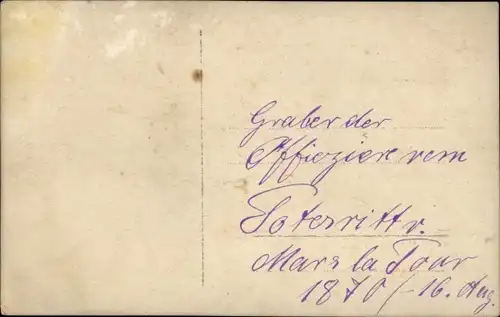 Graber der
Offieziere vom
Toterritt v.
Mars la Tour
1870/-16. Aug.